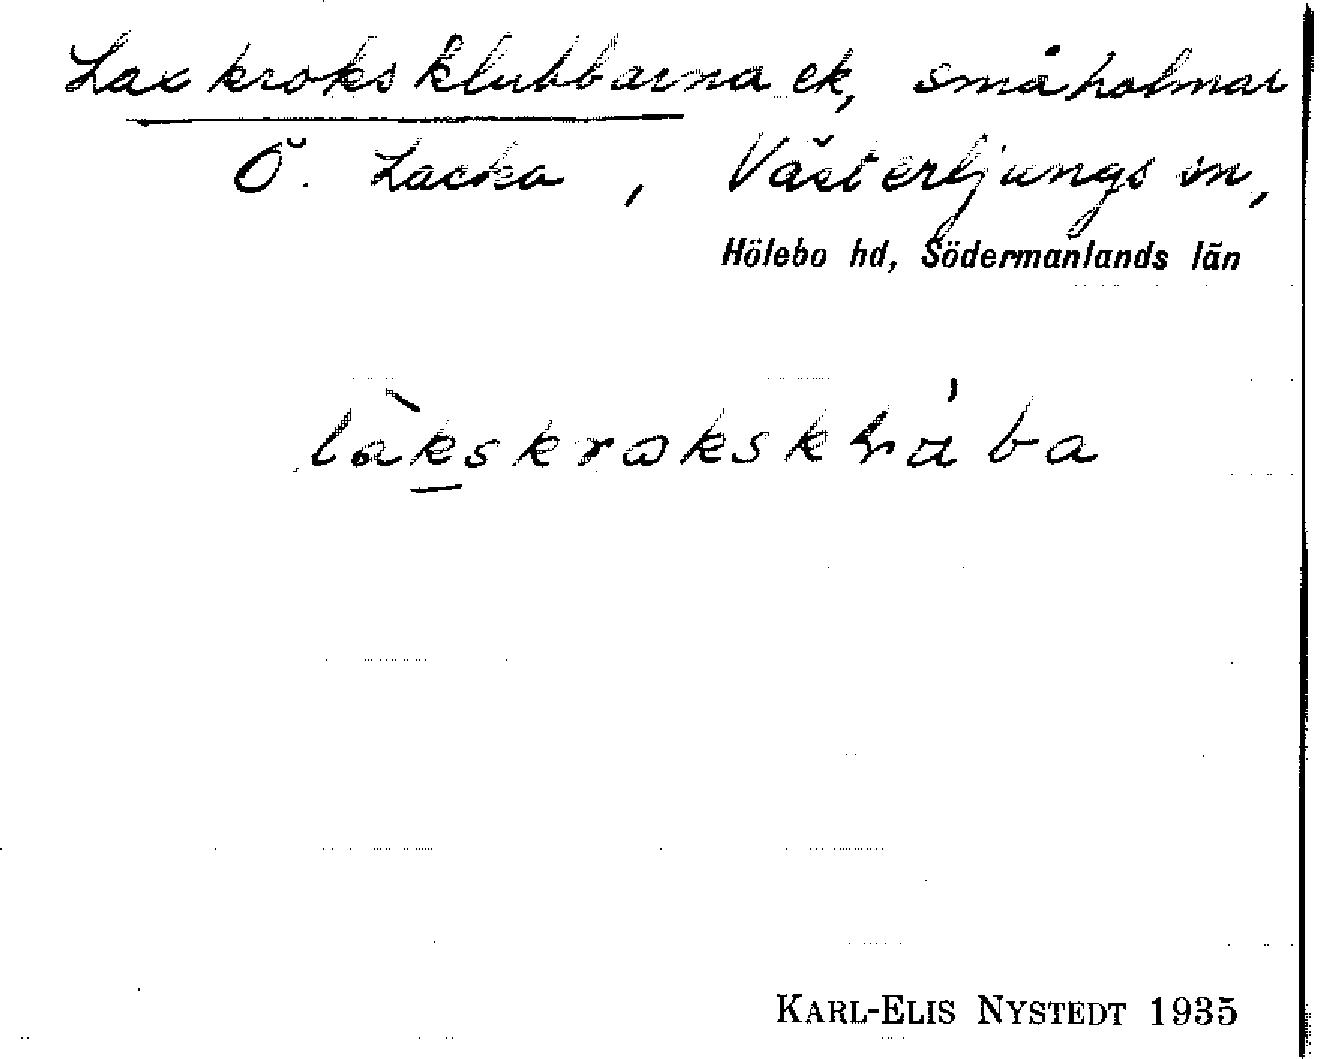 Laxkroksklubbarna ek, småholmar
Ö. Lacka, Västerljungs sn,
Hölebo hd, Södermanlands län
KARL-ELIS NYSTEDT 1935